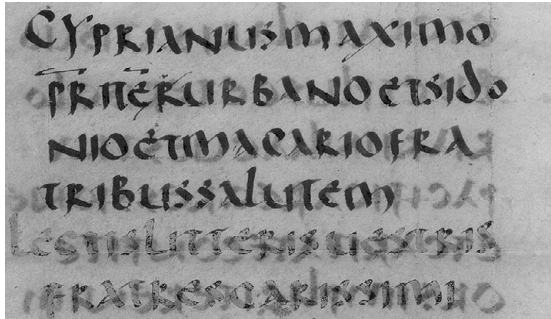 CYPRIANUS MAXIMO
PR ITER URBANO ET SIDO
NIO ET MACARIO FRA
TRIBUS SALUTEM
LECTIS LITTERIS UESTRIS
FRATRES CARISSIMI